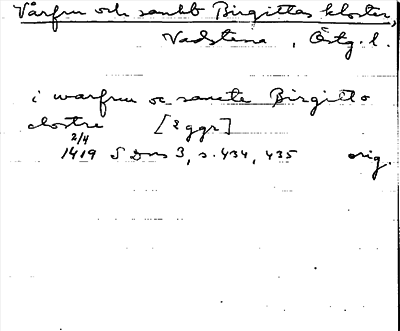 Vårfru och sankt Birgittas kloster,
Vadstena, Östg. l.
i warfru oc sancte Birgitto
clostre [2 ggr]
2/4
1419 S Dns 3, s. 434, 435 orig.